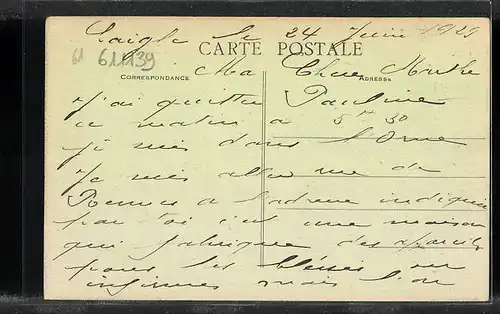 Laigle le 24 Juin 1929
CARTE POSTALE
611139
CORRESPONDANCE
ADRESSE
Ma Chere
Pauline
J'ai quitté
ce matin a 5 h 30
je suis dans l'Orne
Je suis allé rue de
Rennes a l'adresse indiquée
par toi c'est une maison
qui fabrique des appareils
pour les blessés ou
infirmes mais l'on